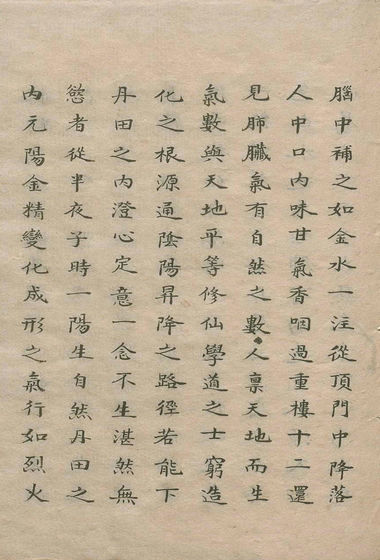 腦中補之如金水一注從頂門中降落
人中口内味甘氣香咽過重樓十二還
見肺臟氣有自然之數人禀天地而生
氣數與天地平等修仙學道之士窮造
化之根源通陰陽昇降之路徑若能下
丹田之内澄心定意一念不生湛然無
慾者從半夜子時一陽生自然丹田之
内元陽金精變化成形之氣行如烈火